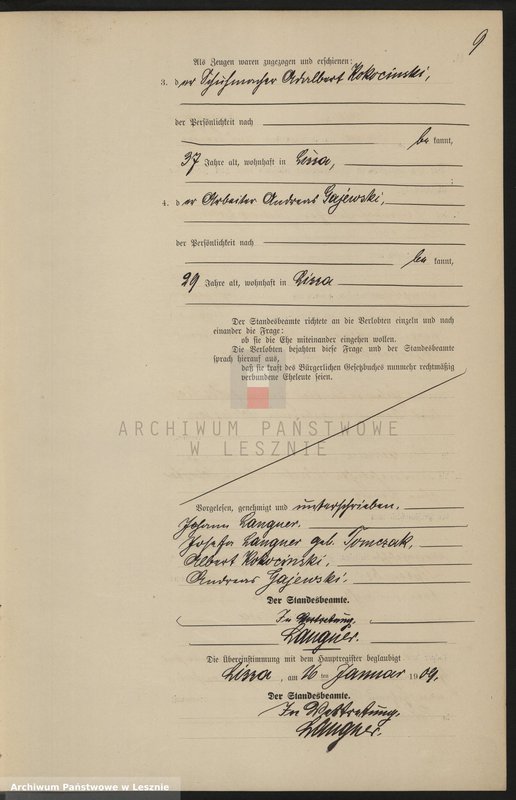 9
Als Zeugen waren zugezogen und erschienen:
3. der Schuhmacher Adalbert Kokocinski,
der Persönlichkeit nach
bekannt,
37 Jahre alt, wohnhaft in Lissa,
4. der Arbeiter Andreas Gajewski,
der Persönlichkeit nach
bekannt,
29 Jahre alt, wohnhaft in Lissa
Der Standesbeamte richtete an die Verlobten einzeln und nach
einander die Frage:
ob sie die Ehe miteinander eingehen wollen.
Die Verlobten bejahten diese Frage und der Standesbeamte
sprach hierauf aus,
daß sie kraft des Bürgerlichen Gesetzbuches nunmehr rechtmäßig
verbundene Eheleute seien.
ARCHIWUM PAŃSTWOWE
W LESZNIE
Vorgelesen, genehmigt und unterschrieben.
Johann Langner.
Josefa Langner geb. Tomczak.
Albert Kokocinski.
Andreas Gajewski.
Der Standesbeamte.
In Vertretung.
Langner.
Die Übereinstimmung mit dem Hauptregister beglaubigt
Lissa, am ten Januar 1909.
Der Standesbeamte.
In Vertretung.
Langner.
Archiwum Państwowe w Lesznie